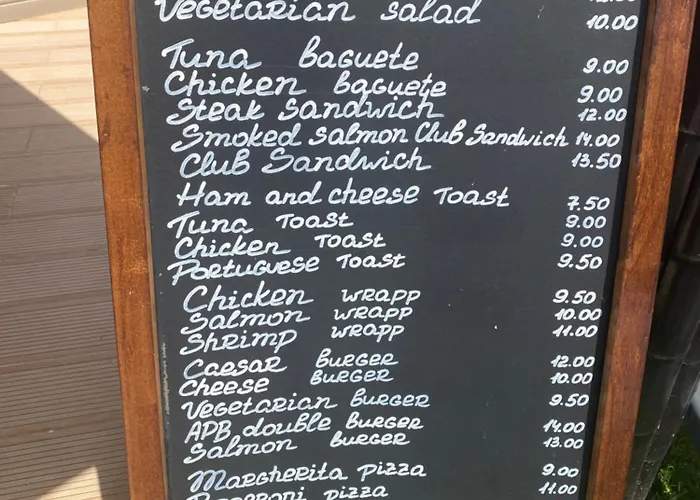 Vegetarian salad 10.00
Tuna baguete 9.00
Chicken baguete 9.00
Steak Sandwich 12.00
Smoked Salmon Club Sandwich 14.00
Club Sandwich 13.50
Ham and cheese Toast 7.50
Tuna Toast 9.00
Chicken Toast 9.00
Portuguese Toast 9.50
Chicken wrapp 9.50
Salmon wrapp 10.00
Shrimp wrapp 11.00
Caesar burger 12.00
Cheese burger 10.00
Vegetarian burger 9.50
APB double burger 14.00
Salmon burger 13.00
Margherita pizza 9.00
pizza 11.00